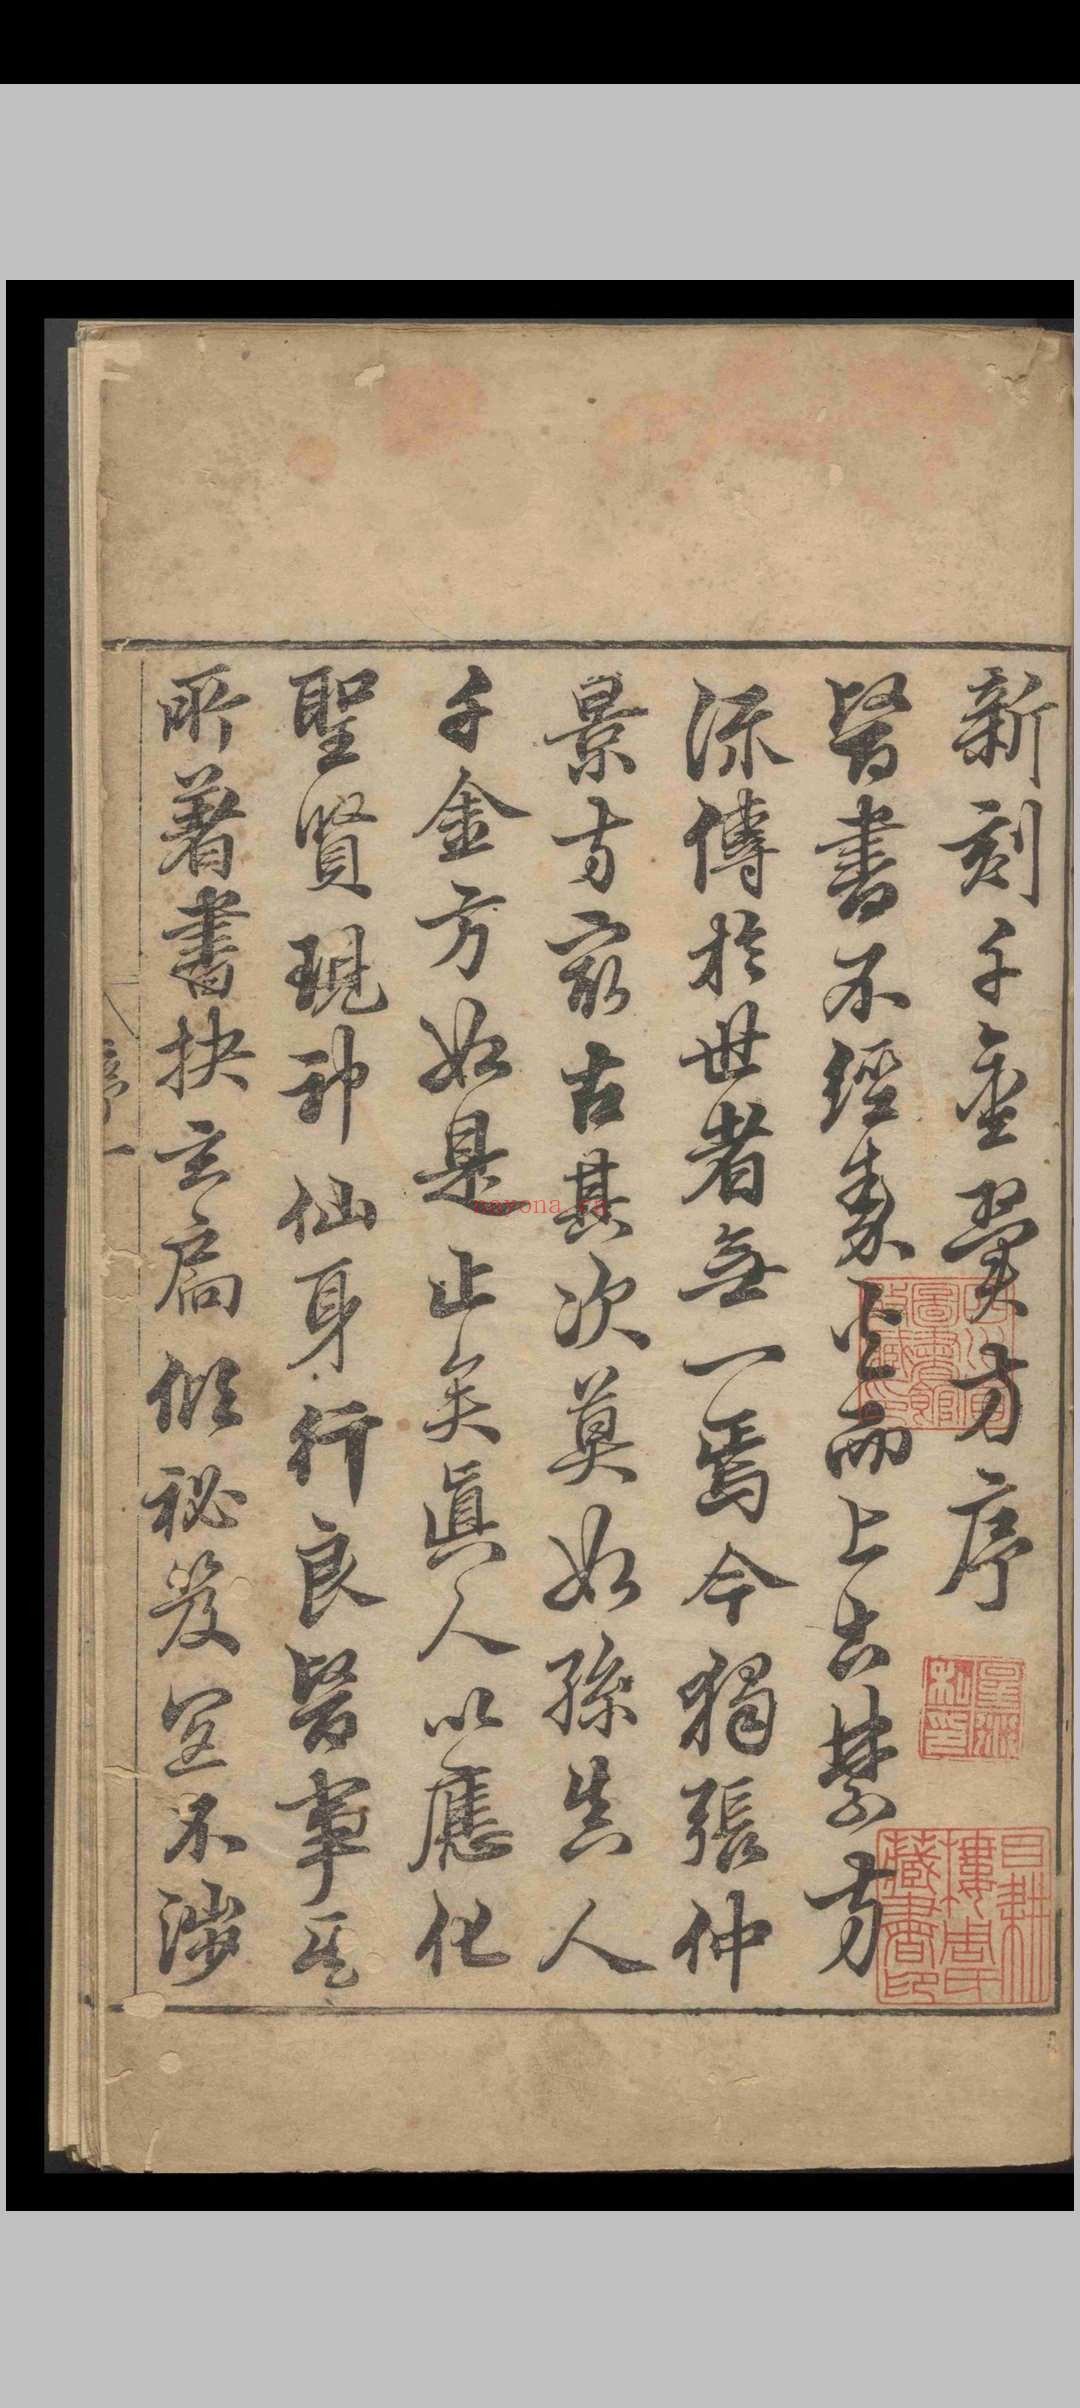 新刻千金翼方序
醫書不經秦火而上古禁方
流傳於世者無一焉今獨張仲
景方最古其次莫如孫真人
千金方如是止矣眞人以應化
聖賢現神仙身行良醫事其
所著書抉玄扃候秘笈宜不涉
序 一
nayona.cn